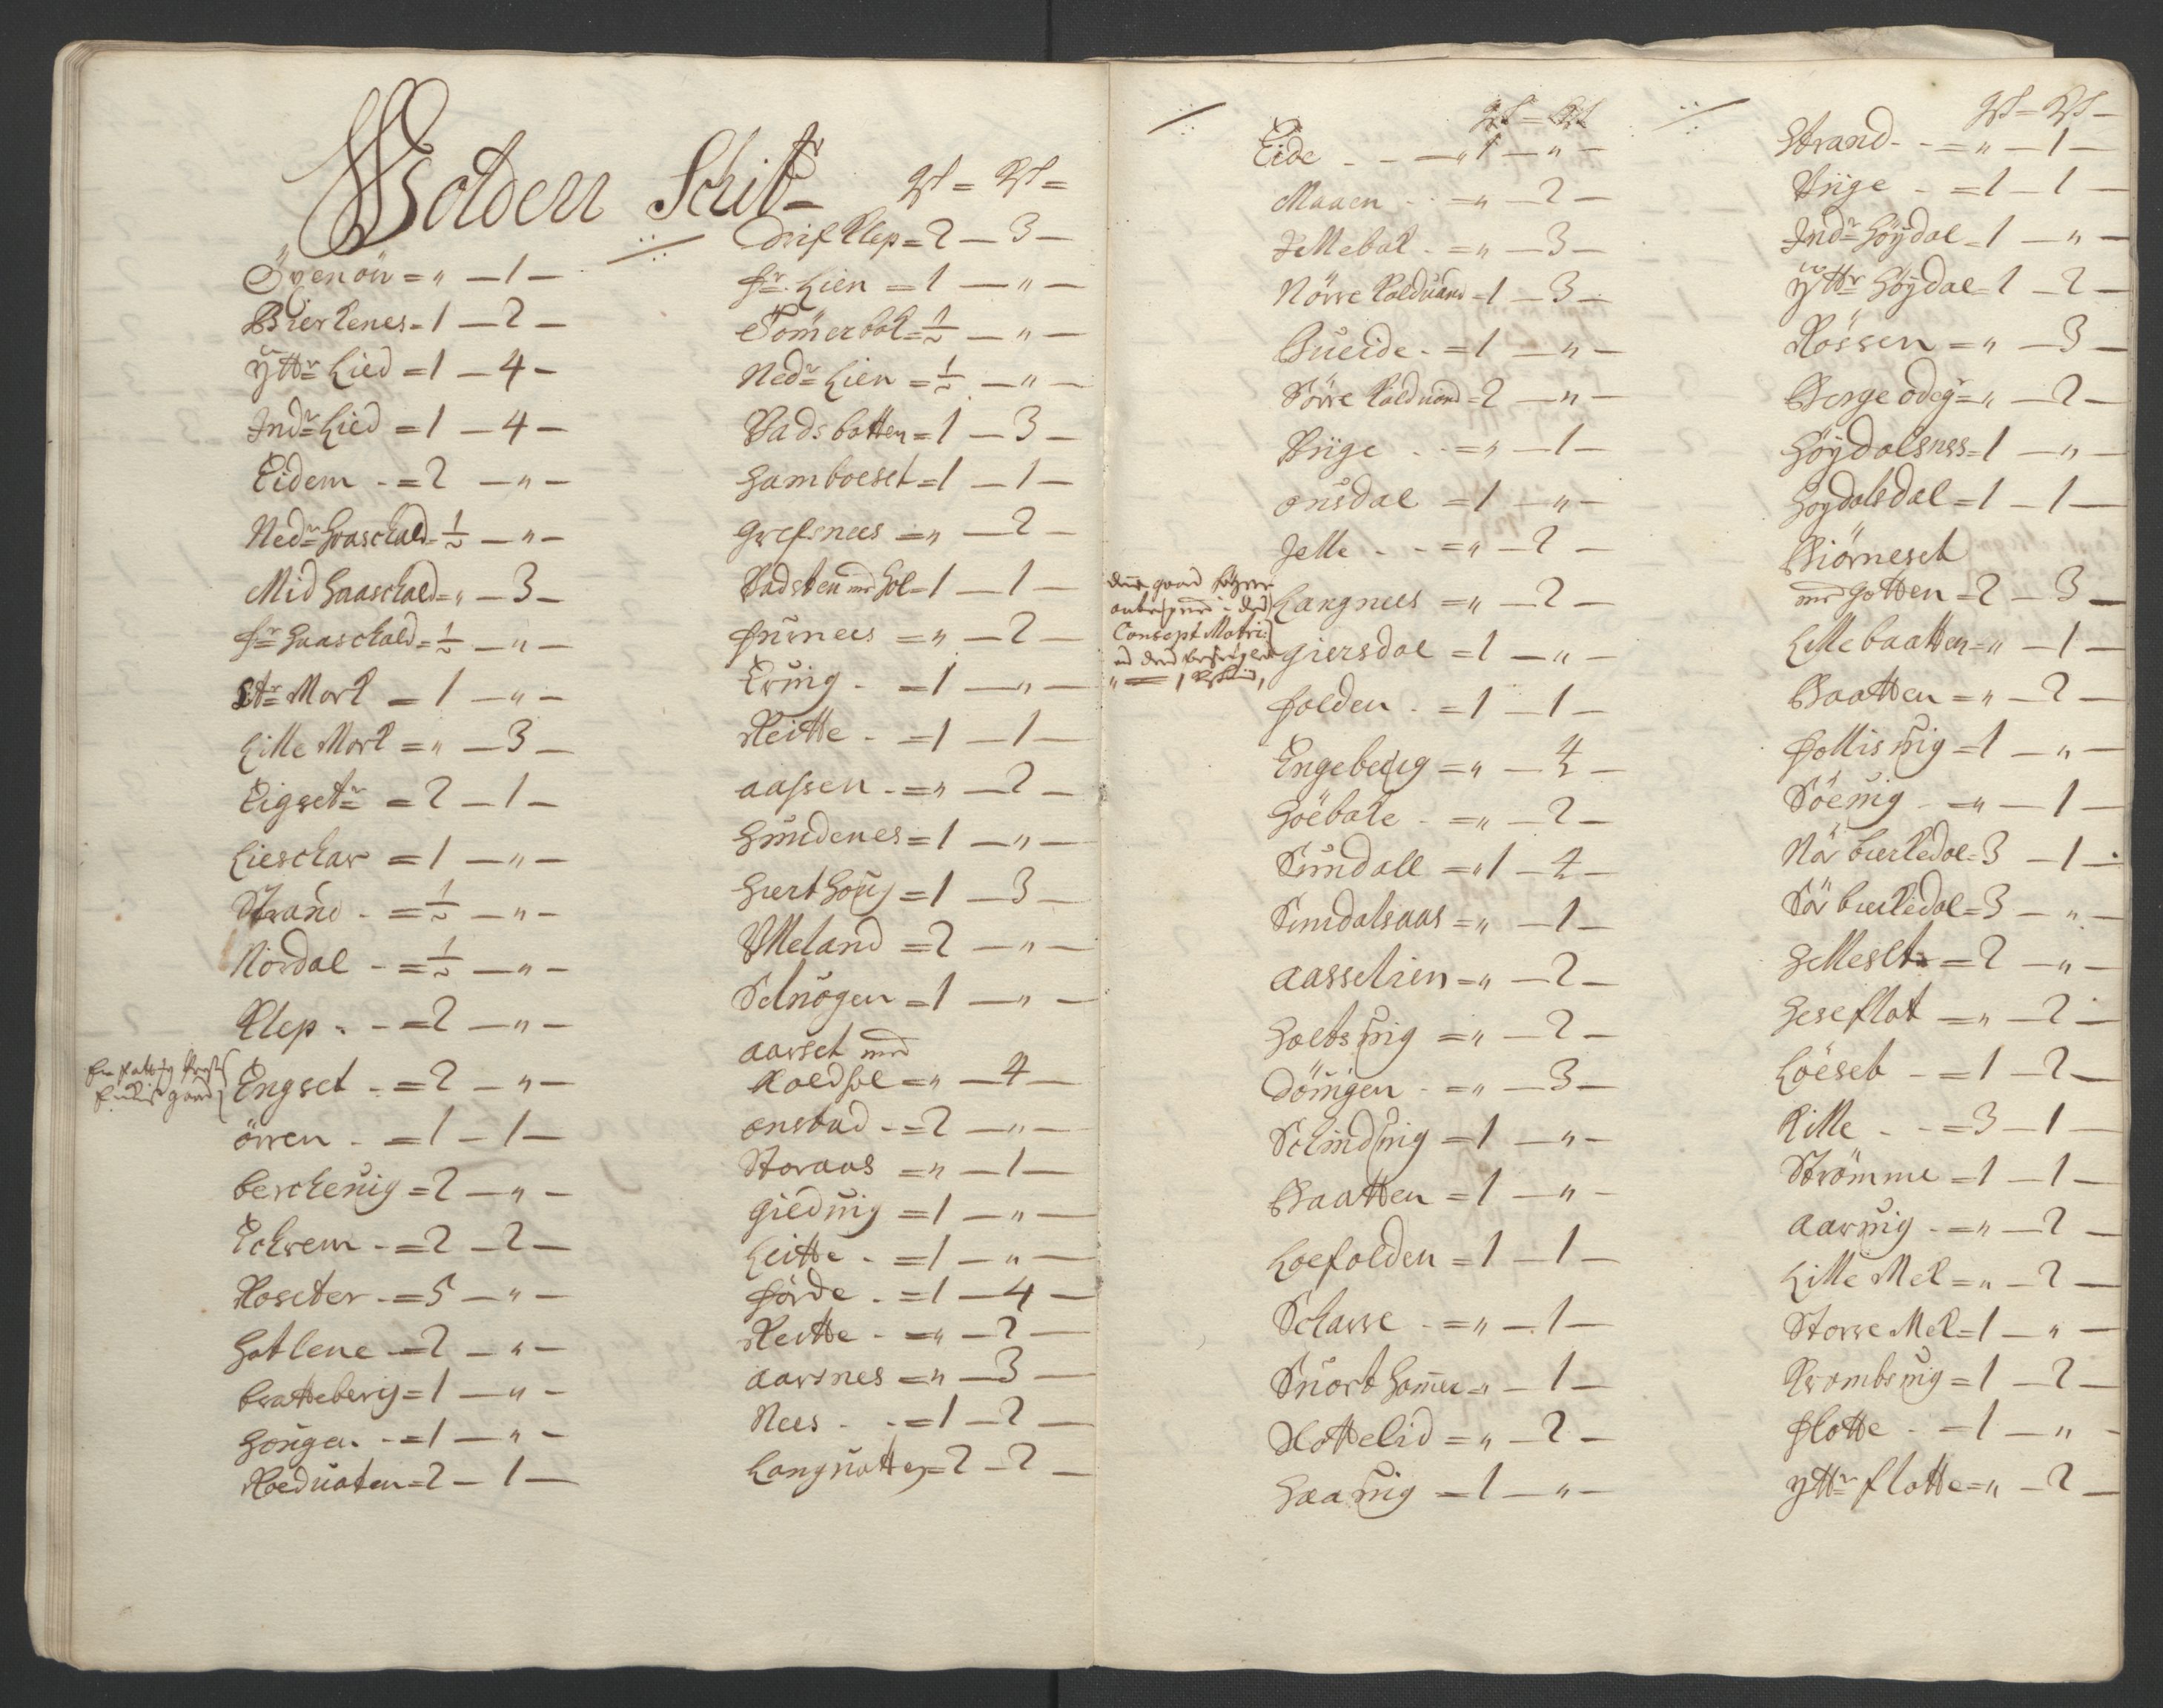 Wolden Schibr
Öyenöu = " — 1 —
Bierkenes = 1 — 2 —
Yttr Lied = 1 — 4 —
Indr Lied = 1 — 4 —
Eidem - = 2 — " —
Nedr Haaschald = ½ — " —
Mid Haaschald = " — 3 —
Fr Haaschald = ½ — " —
Str Mork = 1 — " —
Lille Mork = " — 3 —
Eigsetr = 2 — 1 —
Lieschar = 1 — " —
Strand - = ½ — " —
Nordal - = ½ — " —
Klep - = 2 — " —
Engset - = 2 — " —
örren - = 1 — 1 —
berckeuig = 2 — " —
Eckrem - = 2 — 2 —
Roseter - = 5 — " —
Hatlene = 2 — " —
bratteberg = 1 — " —
Hougen - = 1 — " —
Roeduaten = 2 — 1 —
Drifklep = 2 — 3 —
fr. Lien = 1 — " —
Tömerbak = ½ — " —
Nedr Lien = ½ — " —
Vadsbotten = 1 — 3 —
Hamboeset = 1 — 1 —
grefsnees = " — 2 —
Vadsten md Hol = 1 — 1 —
furnees = " — 2 —
Eruig - = 1 — " —
Reitte - = 1 — 1 —
aassen - = " — 2 —
Hundenes = 1 — " —
Hierthoug = 1 — 3 —
Ulleland = 2 — " —
Seluogen = 1 — " —
aarset md
Koldhol = " — 4 —
onstad - = 2 — " —
Storaas = " — 1 —
gieduig = 1 — " —
Leitte - = 1 — " —
förde - = 1 — 4 —
Reitte - = " — 2 —
aarsnes = " — 3 —
Nees - = 1 — 2 —
Languatten = 2 — 2 —
Eide - - — " 1 — " —
Maaen - = " — 2 —
Jellebak - = " — 3 —
Nörre Kalduand = 1 — 3 —
Bueide - = 1 — " —
Sörre Kalduand = 2 — " —
Vriige - = " — 1 —
onsdal = 1 — " —
Jelle - - = " — 2 —
Consept Matri:
Langnees = " — 2 —
giersdal = 1 — " —
folden - = 1 — 1 —
Engeberg = " — 4 —
Höebake - = " — 2 —
Sundall = " 1 — 4 —
Sundalsaas = " — 1 —
aasselien = " — 2 —
Holtsuig = " — 2 —
Döuigen - = " — 3 —
Scinduig = 1 — " —
Baatten = 1 — " —
Loefolden = 1 — 1 —
Scharre - = " — 1 —
Suart Hamer = " — 1 —
Slottelid = " — 2 —
Haauig = 1 — " —
Strand - - = " — 1 —
Vriige - = 1 — 1 —
Indr Höydal = 1 — " —
Yttr Höydal = 1 — 2 —
Rössen = " — 3 —
Berge ödeg = " — 2 —
Höydalsnes = 1 — " —
Hoydalsdal = 1 — 1 —
Biörneset
md Hotten = 2 — 3 —
Lille baatten = " — 1 —
Baatten = " — 2 —
follisuig = 1 — " —
Söeuig - = " — 1 —
Nör birkedal = 3 — 1 —
Sör birkedal = 3 — " —
Helleset = 2 — " —
Heseflot = " — 2 —
Löeset - = 1 — 2 —
Kille - - = 3 — 1 —
Strömme = 1 — 1 —
aaruig - = " — 2 —
Lille Mek = " — 2 —
Storre Mek = 1 — " —
Krombsuig = 1 — 2 —
flotte - = 1 — " -
yttr flotte = " — 2 —